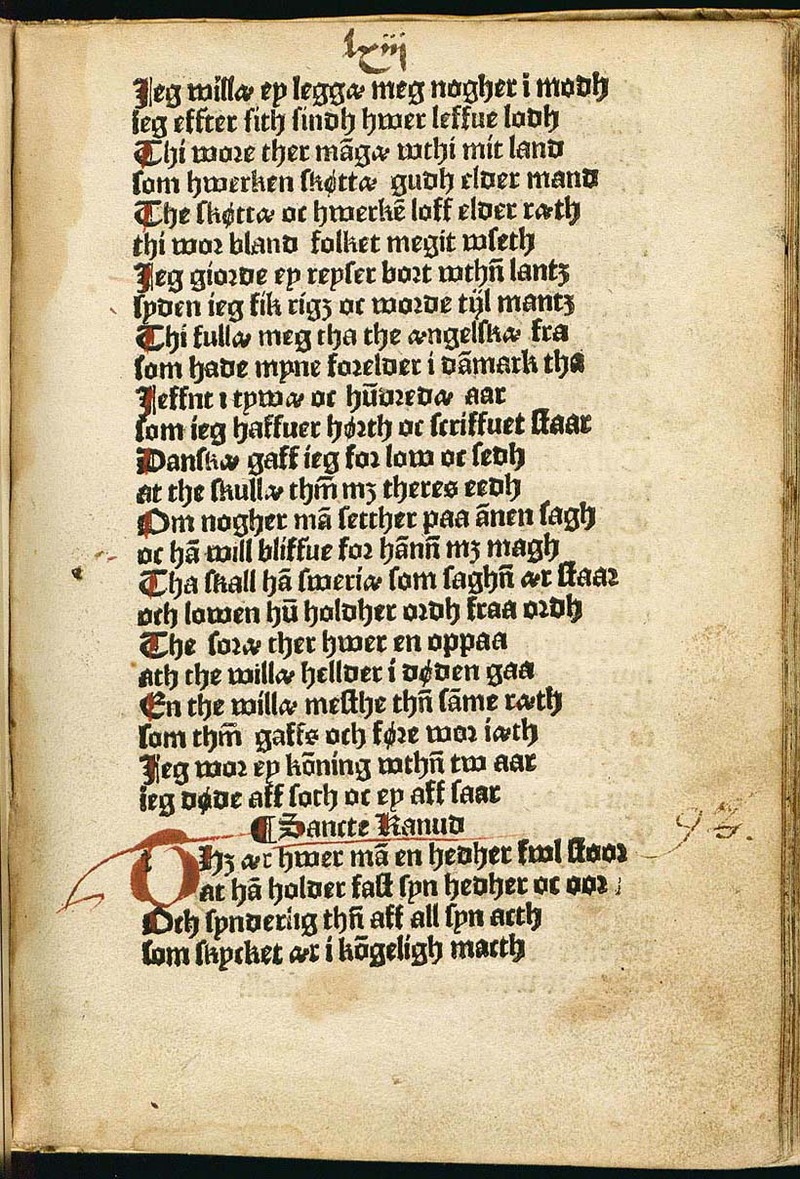 lxiij
Jeg willæ ey leggæ meg nogher i modh
ieg effter sith sindh hwer leffue lodh
Thi wore ther mãgæ wthi mit land
som hwerken skøttæ gudh elder mand
The skøttæ oc hwerkẽ loff elder ræth
thi wor bland folket megit wseth
Jeg giorde ey reyser bort wthñ lantz
syden ieg fik rigz oc worde tijl mantz
Thi fullæ meg tha the ængelskæ fra
som hade myne forelder i dãmark tha
Jeffnt i tywæ oc hũdredæ aar
som ieg haffuer hørth oc scriffuet staar
Danskæ gaff ieg for low oc sedh
at the skullæ thm̃ mz theres eedh
Om nogher mã setther paa ãnen sagh
oc hã will bliffue for hãnñ mz magh
Tha skall hã sweriæ som saghñ ær staar
och lowen hũ holdher ordh fraa ordh
The soræ ther hwer en oppaa
ath the willæ hellder i døden gaa
En the willæ mesthe thñ sãme ræth
som thm̃ gaffs och føre wor iæth
Jeg wor ey kõning wthñ tw aar
ieg døde aff soth oc ey aff saar
¶ Sancte Kanud
THz ær hwer mã en hedher fwl stoor
at hã holder fast syn hedher oc oor
Och synderlig thñ aff all syn acth
som skycket ær i kõgeligh macth
93.